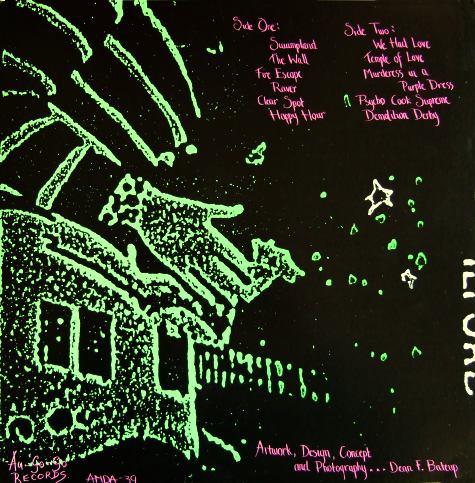 Side One:
Swampland
The Wall
Fire Escape
Raver
Clear Spot
Happy Hour
Side Two:
We Had Love
Temple of Love
Murderess in a
Purple Dress
Psycho Cook Supreme
Demolition Derby
Artwork, Design, Concept
and Photography... Dean F. Bateup
Au-go-go
RECORDS.
ANDA-39